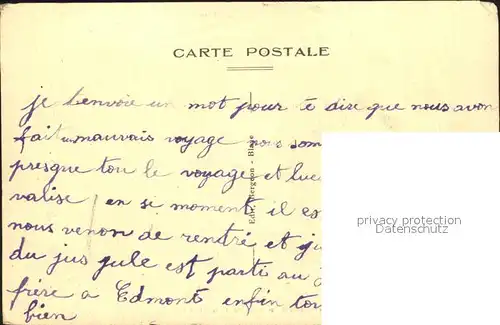 CARTE POSTALE
je t'envoie un mot pour te dire que nous avon
fait un mauvais voyage nous som
presque tou le voyage et luc
valise en se moment il es
nous venon de rentré et j'
du jus jule est parti au
frère a Edmont enfin tou
bien
Edit. Bergeon - Blaye
privacy protection
Datenschutz